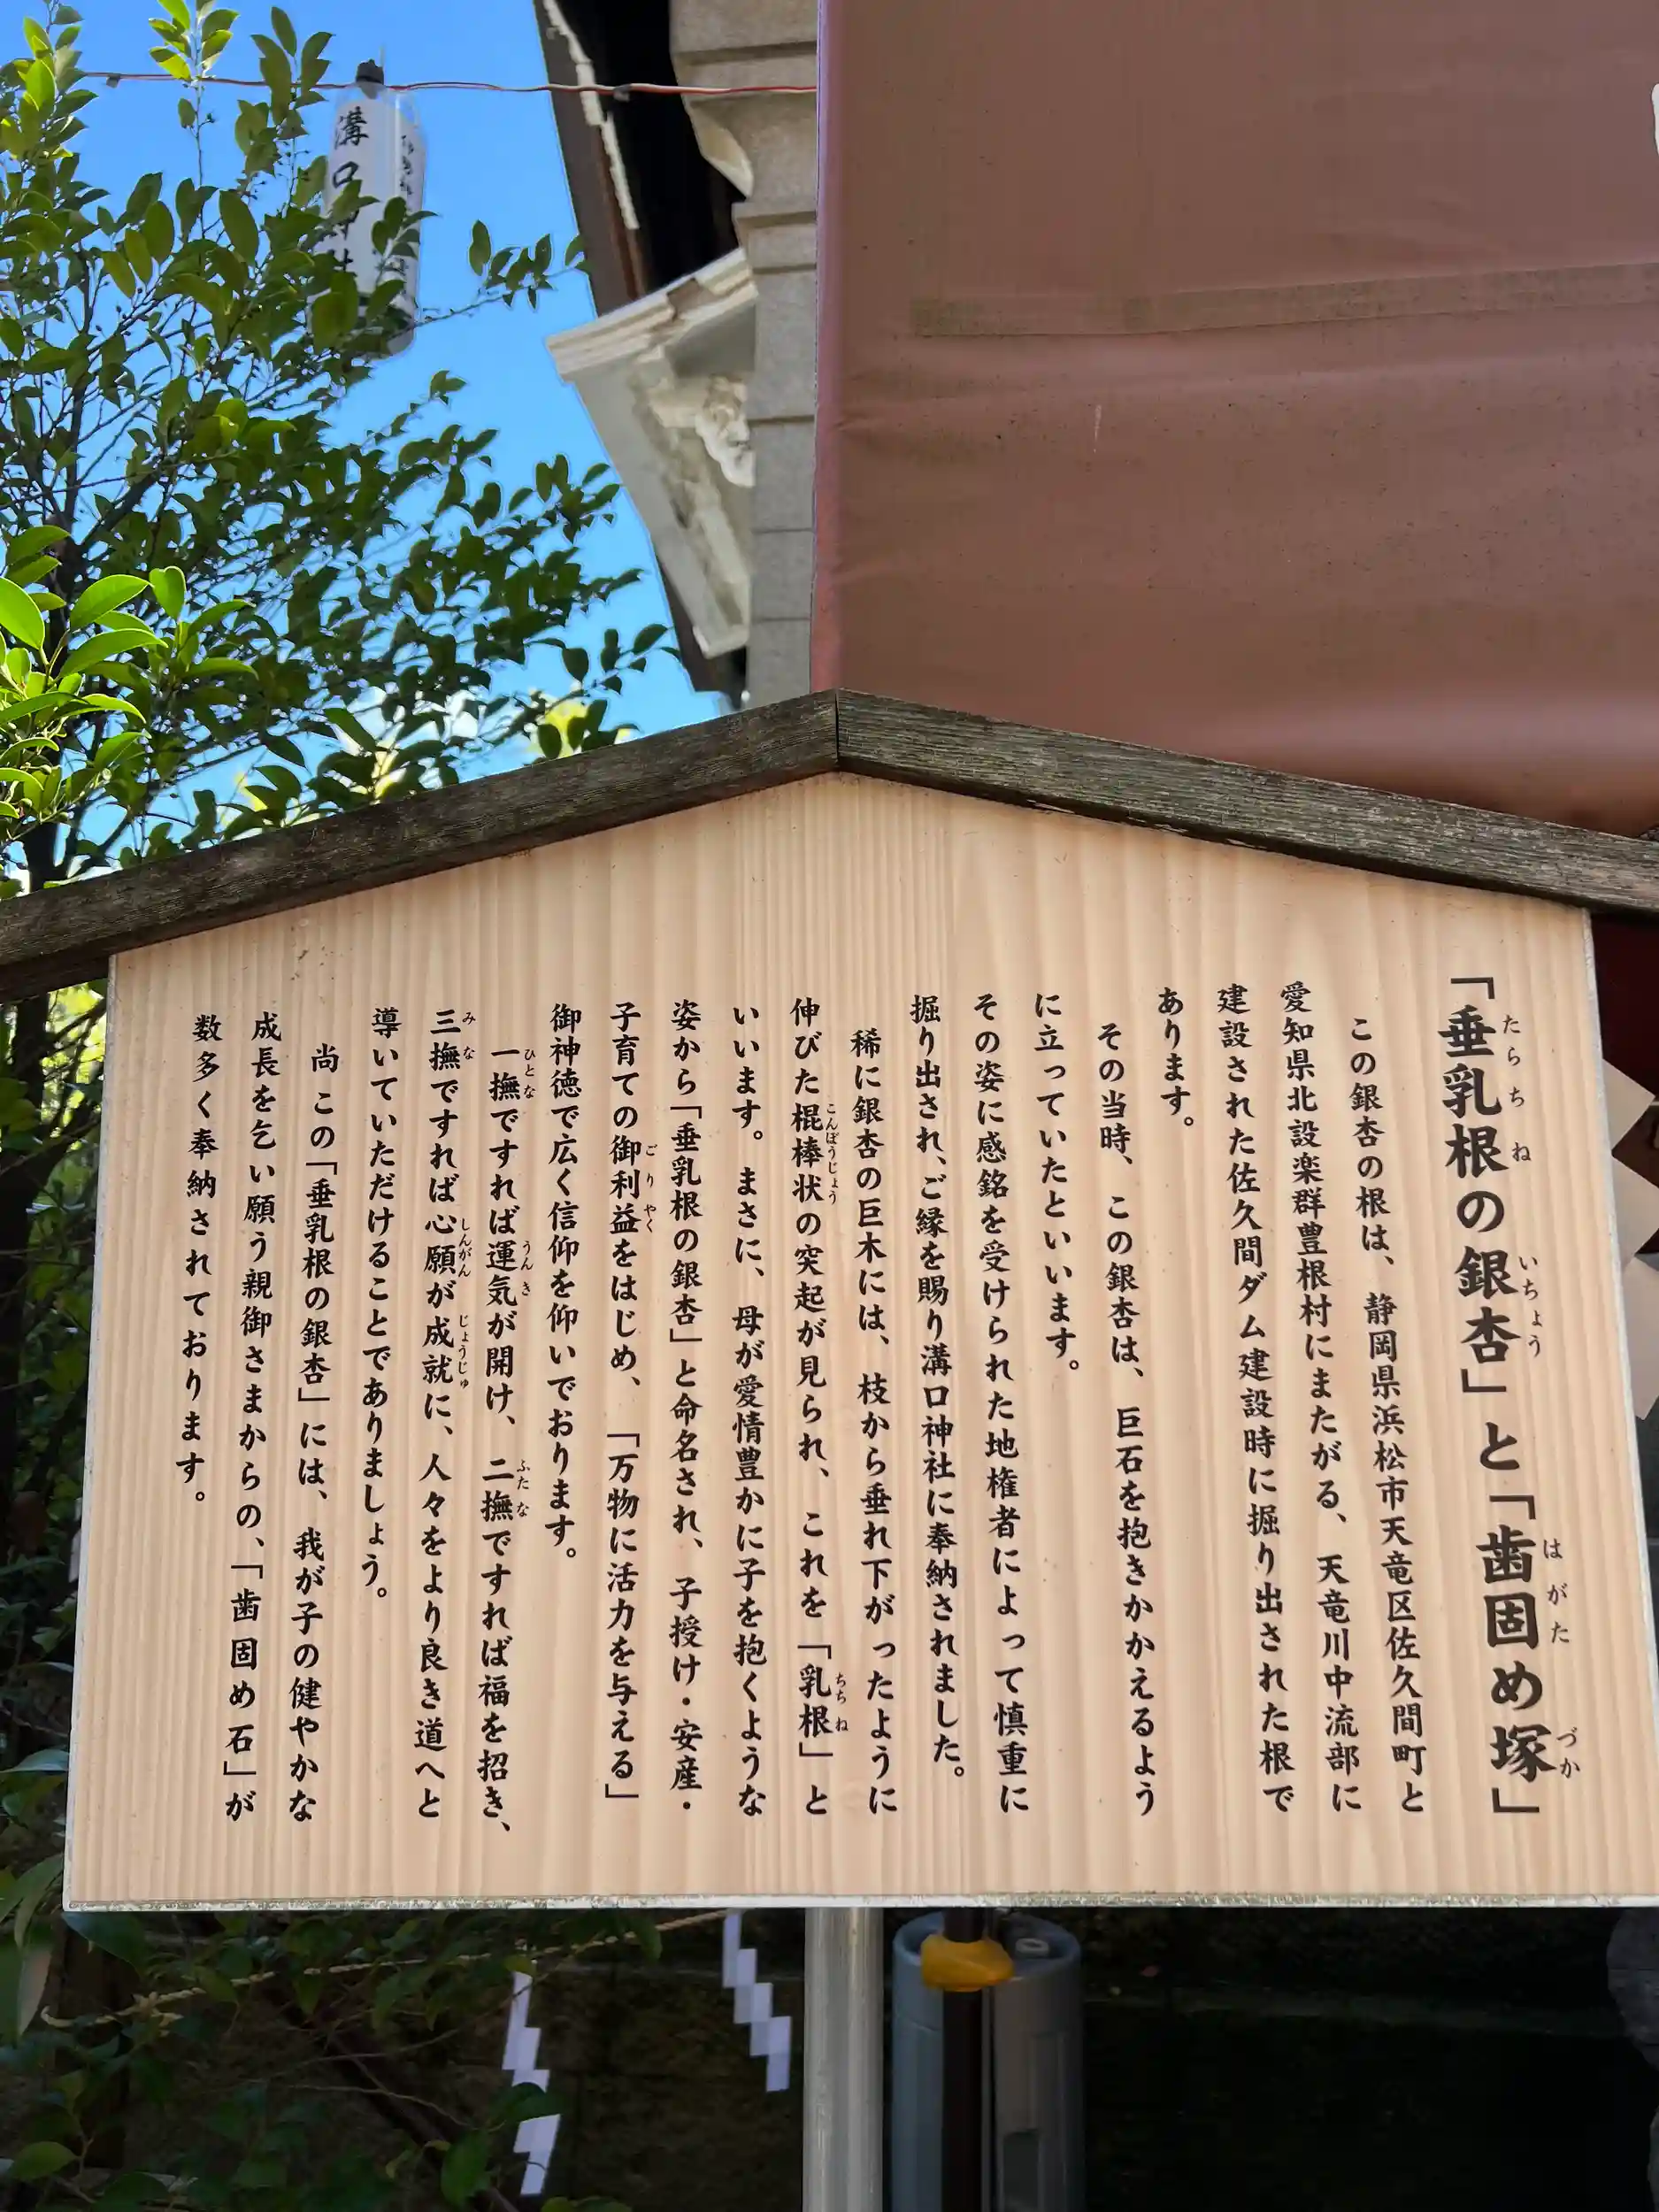 溝口
「垂乳根の銀杏」と「歯固め塚」
たらちね
いちょう
はがた
づか
この銀杏の根は、静岡県浜松市天竜区佐久間町と
愛知県北設楽群豊根村にまたがる、天竜川中流部に
建設された佐久間ダム建設時に掘り出された根で
あります。
その当時、この銀杏は、巨石を抱きかかえるよう
に立っていたといいます。
その姿に感銘を受けられた地権者によって慎重に
掘り出され、ご縁を賜り溝口神社に奉納されました。
稀に銀杏の巨木には、枝から垂れ下がったように
伸びた棍棒状の突起が見られ、これを「乳根」と
こんぼうじょう
ちちね
いいます。まさに、母が愛情豊かに子を抱くような
姿から「垂乳根の銀杏」と命名され、子授け・安産・
子育ての御利益をはじめ、「万物に活力を与える」
ごりやく
御神徳で広く信仰を仰いでおります。
一撫ですれば運気が開け、二撫ですれば福を招き、
ひとな
うんき
ふたな
三撫ですれば心願が成就に、人々をより良き道へと
みな
しんがん
じょうじゅ
導いていただけることでありましょう。
尚この「垂乳根の銀杏」には、我が子の健やかな
成長を乞い願う親御さまからの、「歯固め石」が
数多く奉納されております。